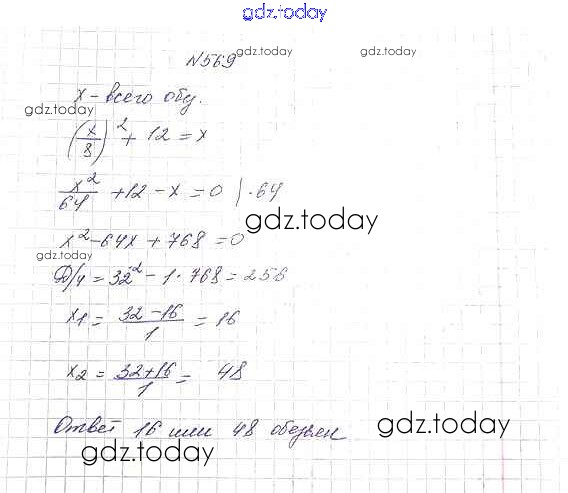 gdz.today
N569 gdz.today gdz.today
x - всего обез.
gdz.today
(x/8)² + 12 = x
x²/64 + 12 - x = 0 | · 64
gdz.today
x² - 64x + 768 = 0
gdz.today
D/4 = 32² - 1 · 768 = 256
x1 = (32 - 16)/1 = 16
x2 = (32 + 16)/1 = 48
Ответ 16 или 48 обезьян
gdz.today gdz.today